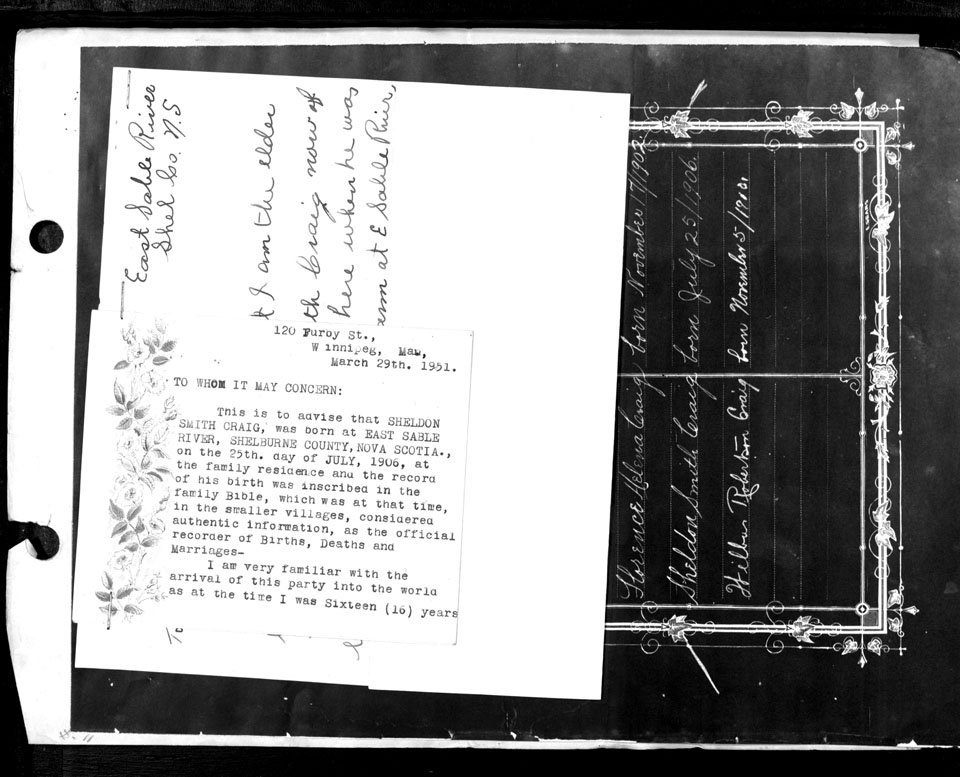 East Sable River
Shel Co. N.S
t I am the elder
th Craig now of
here when he was
arm at E Sable River,
120 Furby St.,
Winnipeg, Man,
March 29th. 1951.
TO WHOM IT MAY CONCERN:
This is to advise that SHELDON
SMITH CRAIG, was born at EAST SABLE
RIVER, SHELBURNE COUNTY, NOVA SCOTIA.,
on the 25th. day of JULY, 1906, at
the family residence and the record
of his birth was inscribed in the
family Bible, which was at that time,
in the smaller villages, considered
authentic information, as the official
recorder of Births, Deaths and
Marriages-
I am very familiar with the
arrival of this party into the world
as at the time I was Sixteen (16) years
To
Florence Helena Craig born November 17/1902.
Sheldon Smith Craig born July 25/1906.
Wilbur Robertson Craig born November 5/1910.